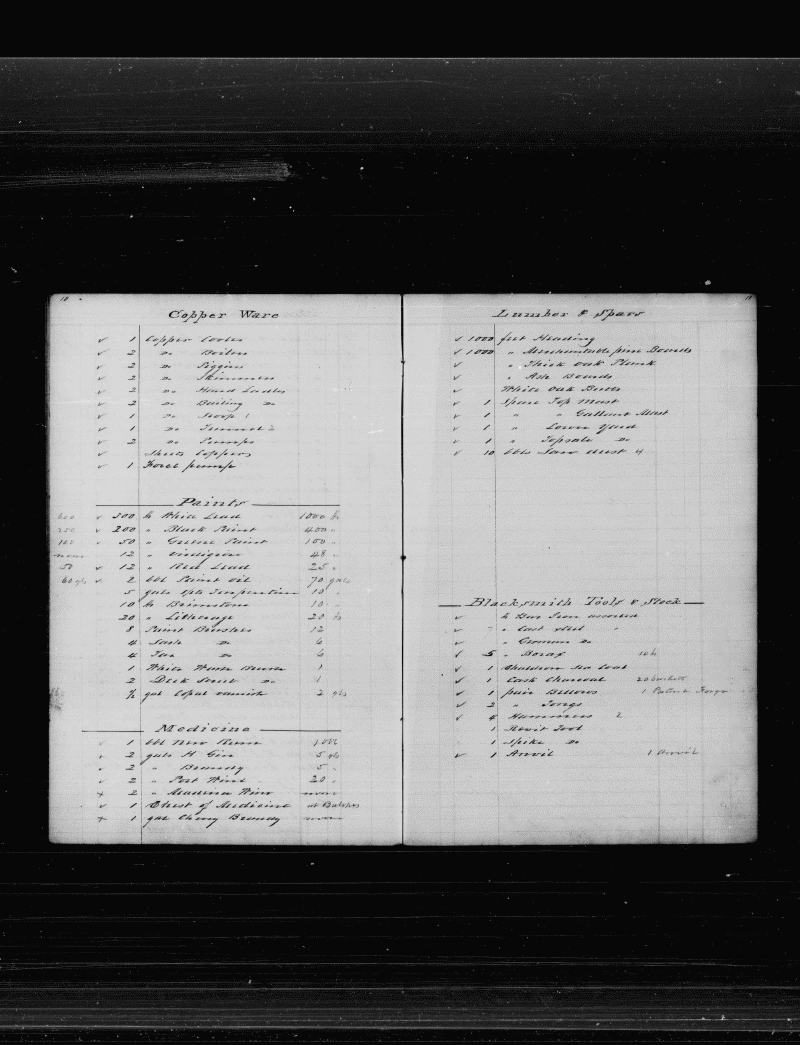 10
Copper Ware
✓ 1 Copper Cooler
✓ 2 do Boilers
✓ 2 do Piggins
✓ 2 do Skimmers
✓ 2 do Hand Ladles
✓ 2 do Bailing do
✓ 1 do Scoop 1
✓ 1 do Tunnel 2
✓ 2 do Pumps
✓ Sheets Coppers
✓ 1 Force pump
Paints
600 ✓ 500 lb White Lead 1000 lb
250 ✓ 200 " Black Paint 400 "
100 ✓ 50 " Green Paint 100 "
none 12 " Verdigris 48 "
50 ✓ 12 " Red Lead 25 "
60 gls ✓ 2 bbl Paint oil 70 gals
5 gals Spts Turpentine 10 "
10 lb Brimstone 10 "
20 " Litherage 20 lb
8 Paint Brushes 12
4 Sash do 6
4 Tar do 6
1 White Wash Brush 1
2 Deck Scrub do 1
½ gal Copal varnish 2 gls
Medicine
✓ 1 bbl New Rum 1 bbl
✓ 2 gals H Gin 5 gls
✓ 2 " Brandy 5 "
✓ 2 " Port Wine 20 "
+ 2 " Madeira Wine none
✓ 1 Chest of Medicine at
+ 1 gal Cherry Brandy none
11
Lumber & Spars
✓ 1000 feet Heading
✓ 1000 " Merchantable pine Boards
✓ " Thick oak Plank
✓ " Ash Boards
White Oak Butts
✓ 1 Spare Top Mast
✓ 1 " " Gallant Mast
✓ 1 " Lower Yard
✓ 1 " Topsale do
✓ 10 bbls Saw dust 4
Blacksmith Tools & Stock
✓ lb Bar Iron assorted
✓ " Cast steel "
✓ " German do
✓ 5 " Borax 10 lb
✓ 1 Chaldron Sea Coal
✓ 1 Cask Charcoal 20 bushels
✓ 1 pair Bellows 1 Patent Forge
✓ 2 " Tongs
✓ 4 Hammers 2
1 Rivit Tool
1 Spike do
✓ 1 Anvil 1 Anvil